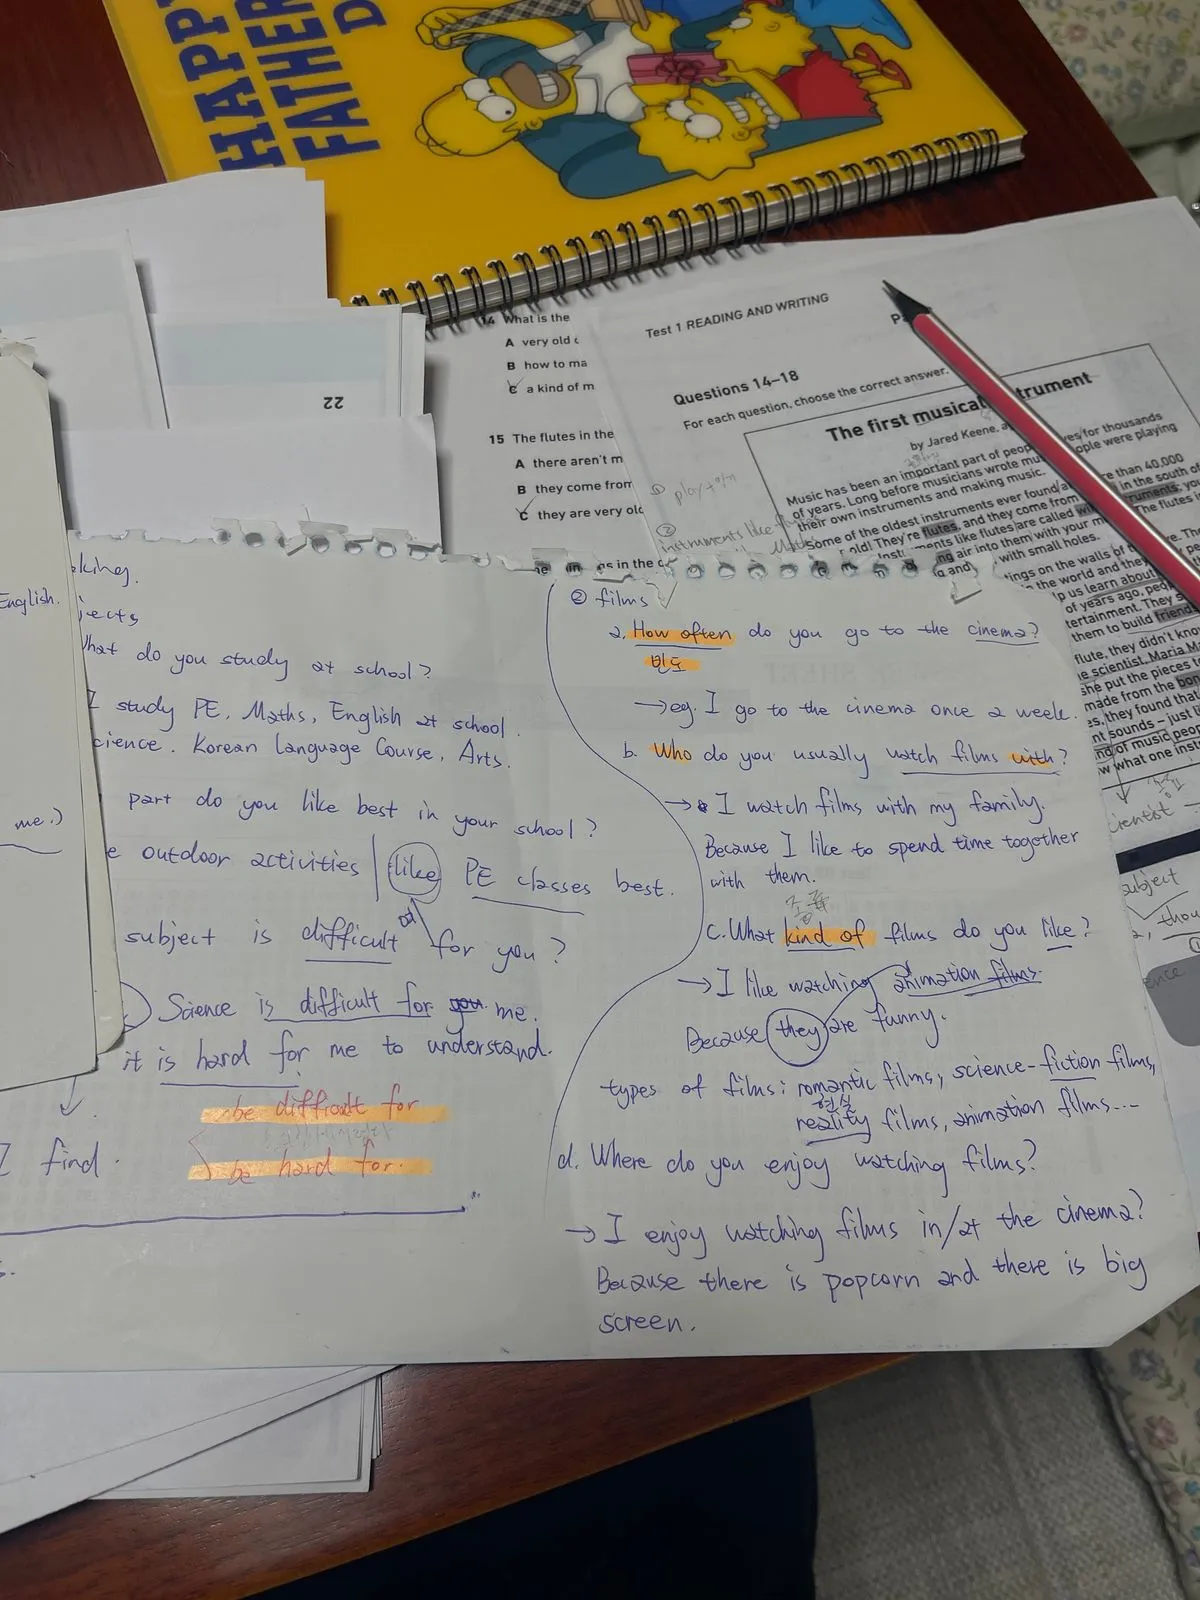 HAPPY
FATHER
D
22
14 What is the
A very old
B how to ma
C a kind of m
15 The flutes in the
A there aren't m
B they come from
C they are very old
Test 1 READING AND WRITING
Questions 14–18
For each question, choose the correct answer.
The first musical instrument
by Jared Keene, a
Music has been an important part of peop
ves for thousands
of years. Long before musicians wrote mu
ople were playing
their own instruments and making music.
Some of the oldest instruments ever found a
re than 40,000
old! They're flutes, and they come from
in the south of
nents like flutes are called wi
ng air into them with your m
The flutes
with small holes.
① play + 악기
②
instruments like flutes
tings on the walls of
the world and they
lp us learn about
of years ago, peo
tertainment. They s
them to build friend
flute, they didn't kno
e scientist, Maria Ma
she put the pieces
made from the bon
es, they found that
nt sounds – just li
nd of music peop
w what one inst
cientist
subject
2, thou
ence
king.
English.
jects
What do you study at school?
I study PE, Maths, English at school.
cience. Korean Language Course, Arts.
me.)
part do you like best in your school?
e outdoor activities | like PE classes best.
subject is difficult for you?
Science is difficult for you me.
it is hard for me to understand.
be difficult for
be hard for.
I find.
s.
② films
a. How often do you go to the cinema?
빈도
→ eg. I go to the cinema once a week.
b. Who do you usually watch films with?
→ I watch films with my family.
Because I like to spend time together
with them.
종류
c. What kind of films do you like?
→ I like watching animation films.
Because they are funny.
types of films: romantic films, science-fiction films,
현실
reality films, animation films...
d. Where do you enjoy watching films?
→ I enjoy watching films in/at the cinema?
Because there is popcorn and there is big
screen.